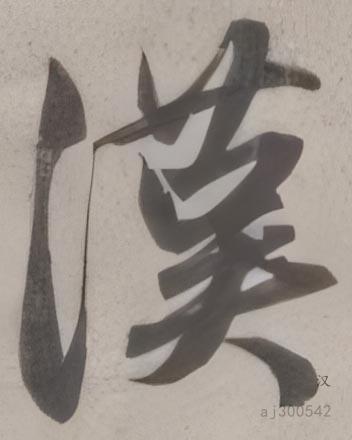 漢
汉
aj300542